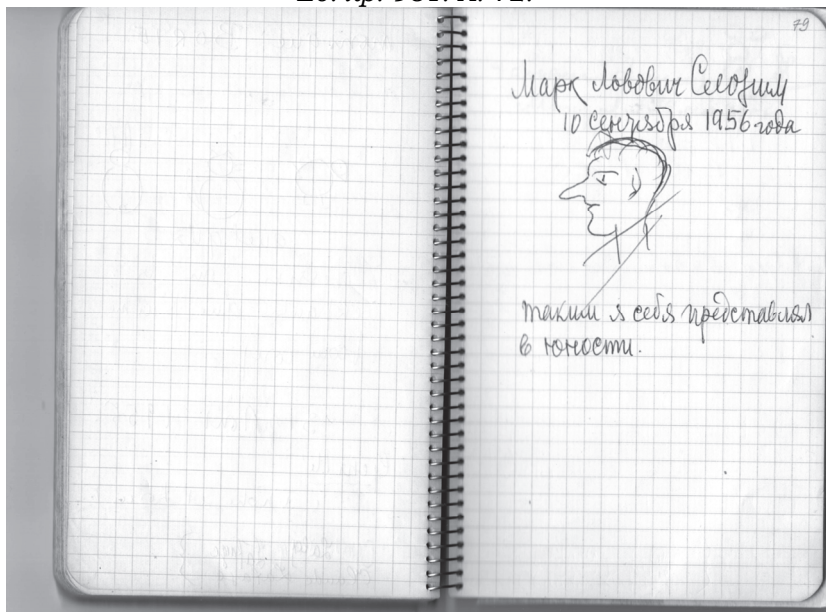 79
Марк Львович
10 сентября 1956 года
таким я себя представлял
в юности.